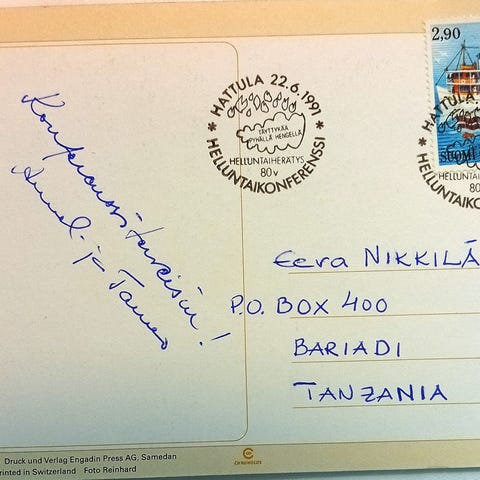 2,90
HATTULA 22.6.1991
TÄYTTYKÄÄ
PYHÄLLÄ HENGELLÄ
HELLUNTAIHERÄTYS
80 v
HELLUNTAIKONFERENSSI
HATTULA
SUOMI
80
HELLUNTAIKON
Konferenssiterveisin!
Anneli ja
Eeva NIKKILÄ
P.O. BOX 400
BARIADI
TANZANIA
Druck und Verlag Engadin Press AG, Samedan
rinted in Switzerland Foto Reinhard